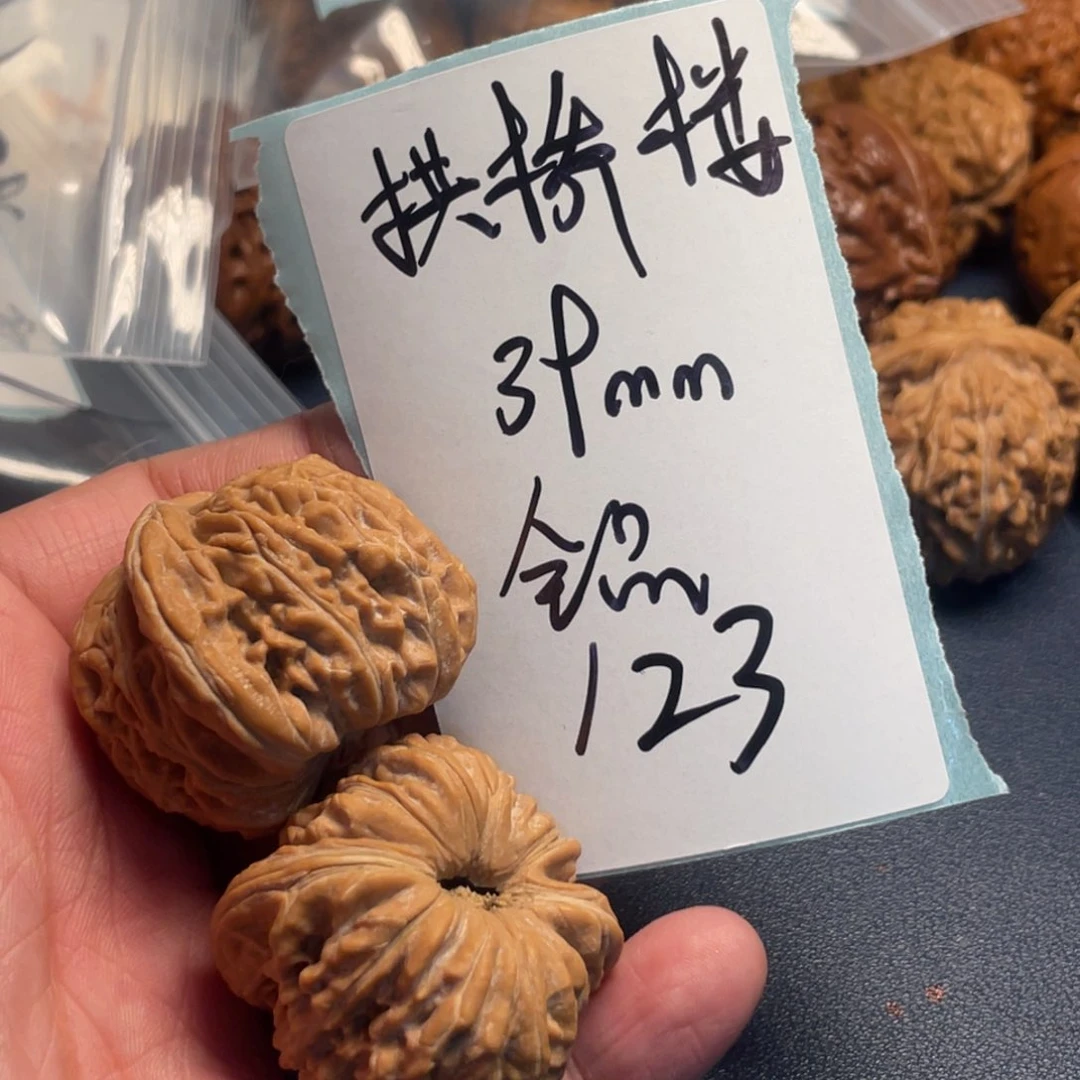 拱桥楼
39mm
全品
123